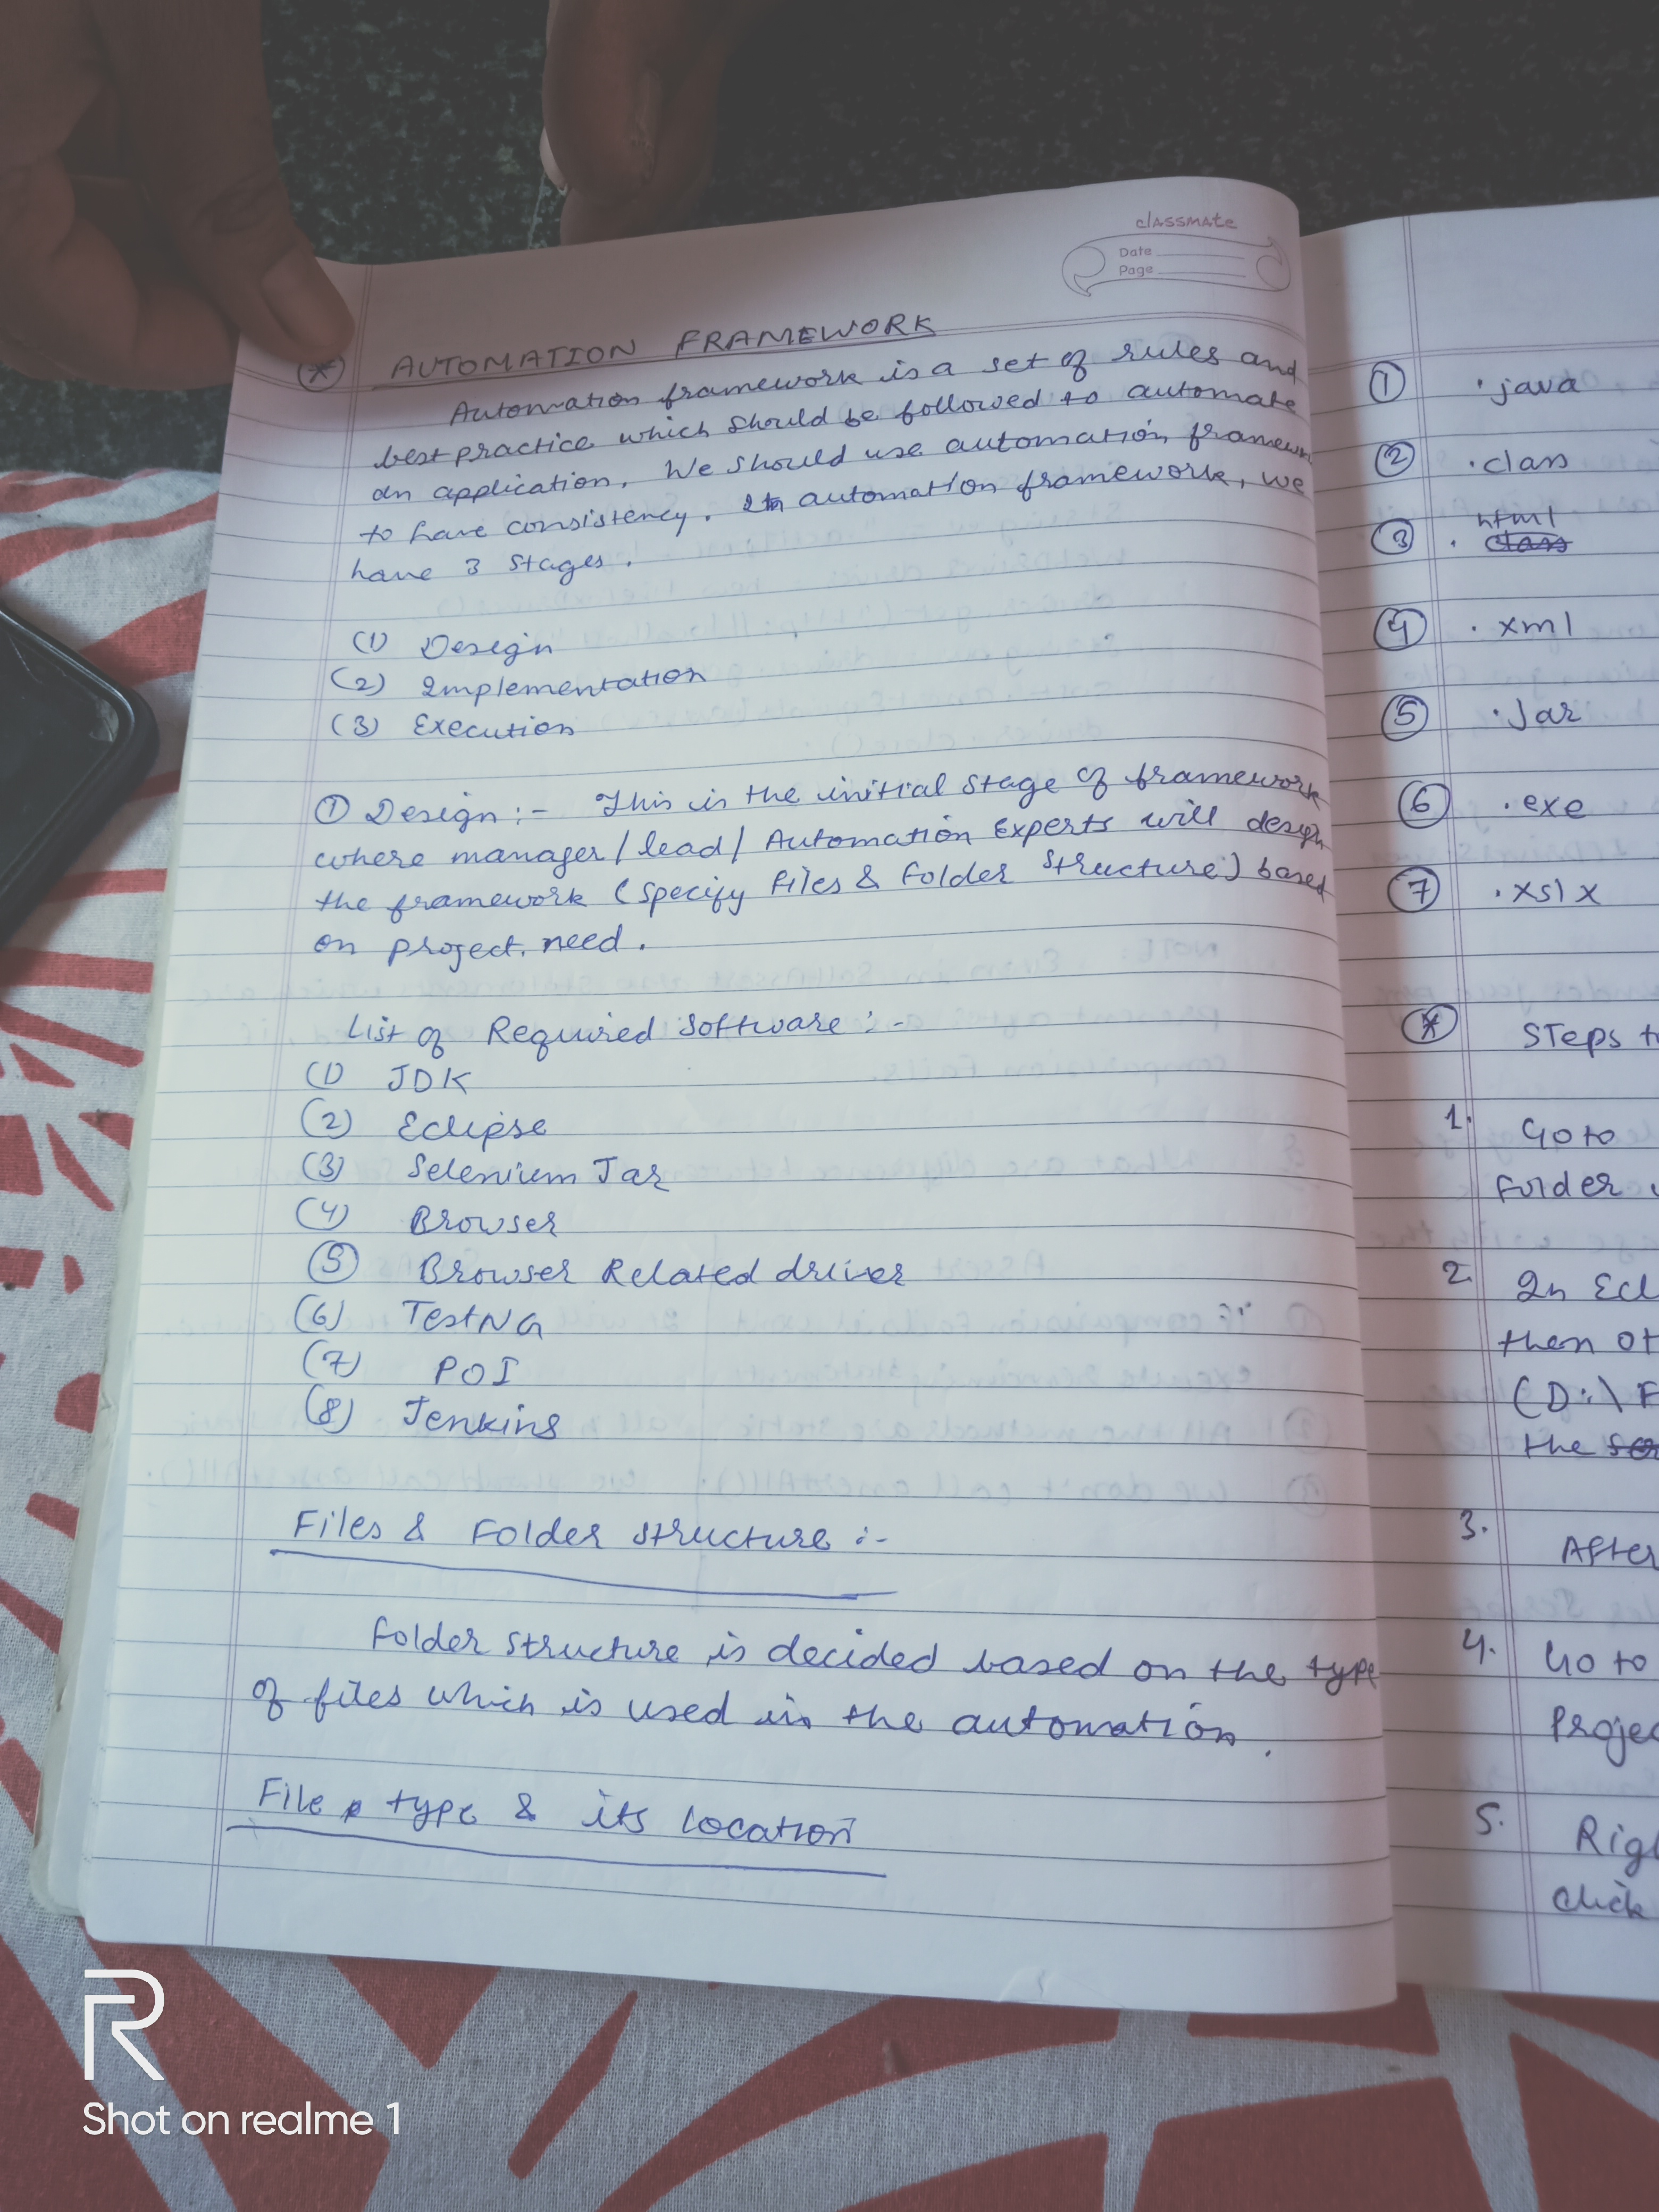 classmate
Date
Page
AUTOMATION FRAMEWORK
Automation framework is a set of rules and
best practice which should be followed to automate
an application. We should use automation framew
to have consistency. In automation framework, we
have 3 stages.
(1) Design
(2) Implementation
(3) Execution
① Design :- This is the initial stage of framework
where manager/lead/Automation Experts will design
the framework (specify files & folder structure) based
on project need.
List of Required Software :-
(1) JDK
(2) Eclipse
(3) Selenium Jar
(4) Browser
⑤ Browser Related driver
(6) TestNG
(7) POI
(8) Jenkins
Files & Folder structure :-
Folder structure is decided based on the type
of files which is used in the automation.
File type & its location
① .java
② .class
③ .html
④ .xml
⑤ .Jar
⑥ .exe
⑦ .xslx
Steps t
1. Go to
Folder
2. In Ecl
then ot
(D:\F
the
3. After
4. Go to
Projec
5. Rig
click
R
Shot on realme 1